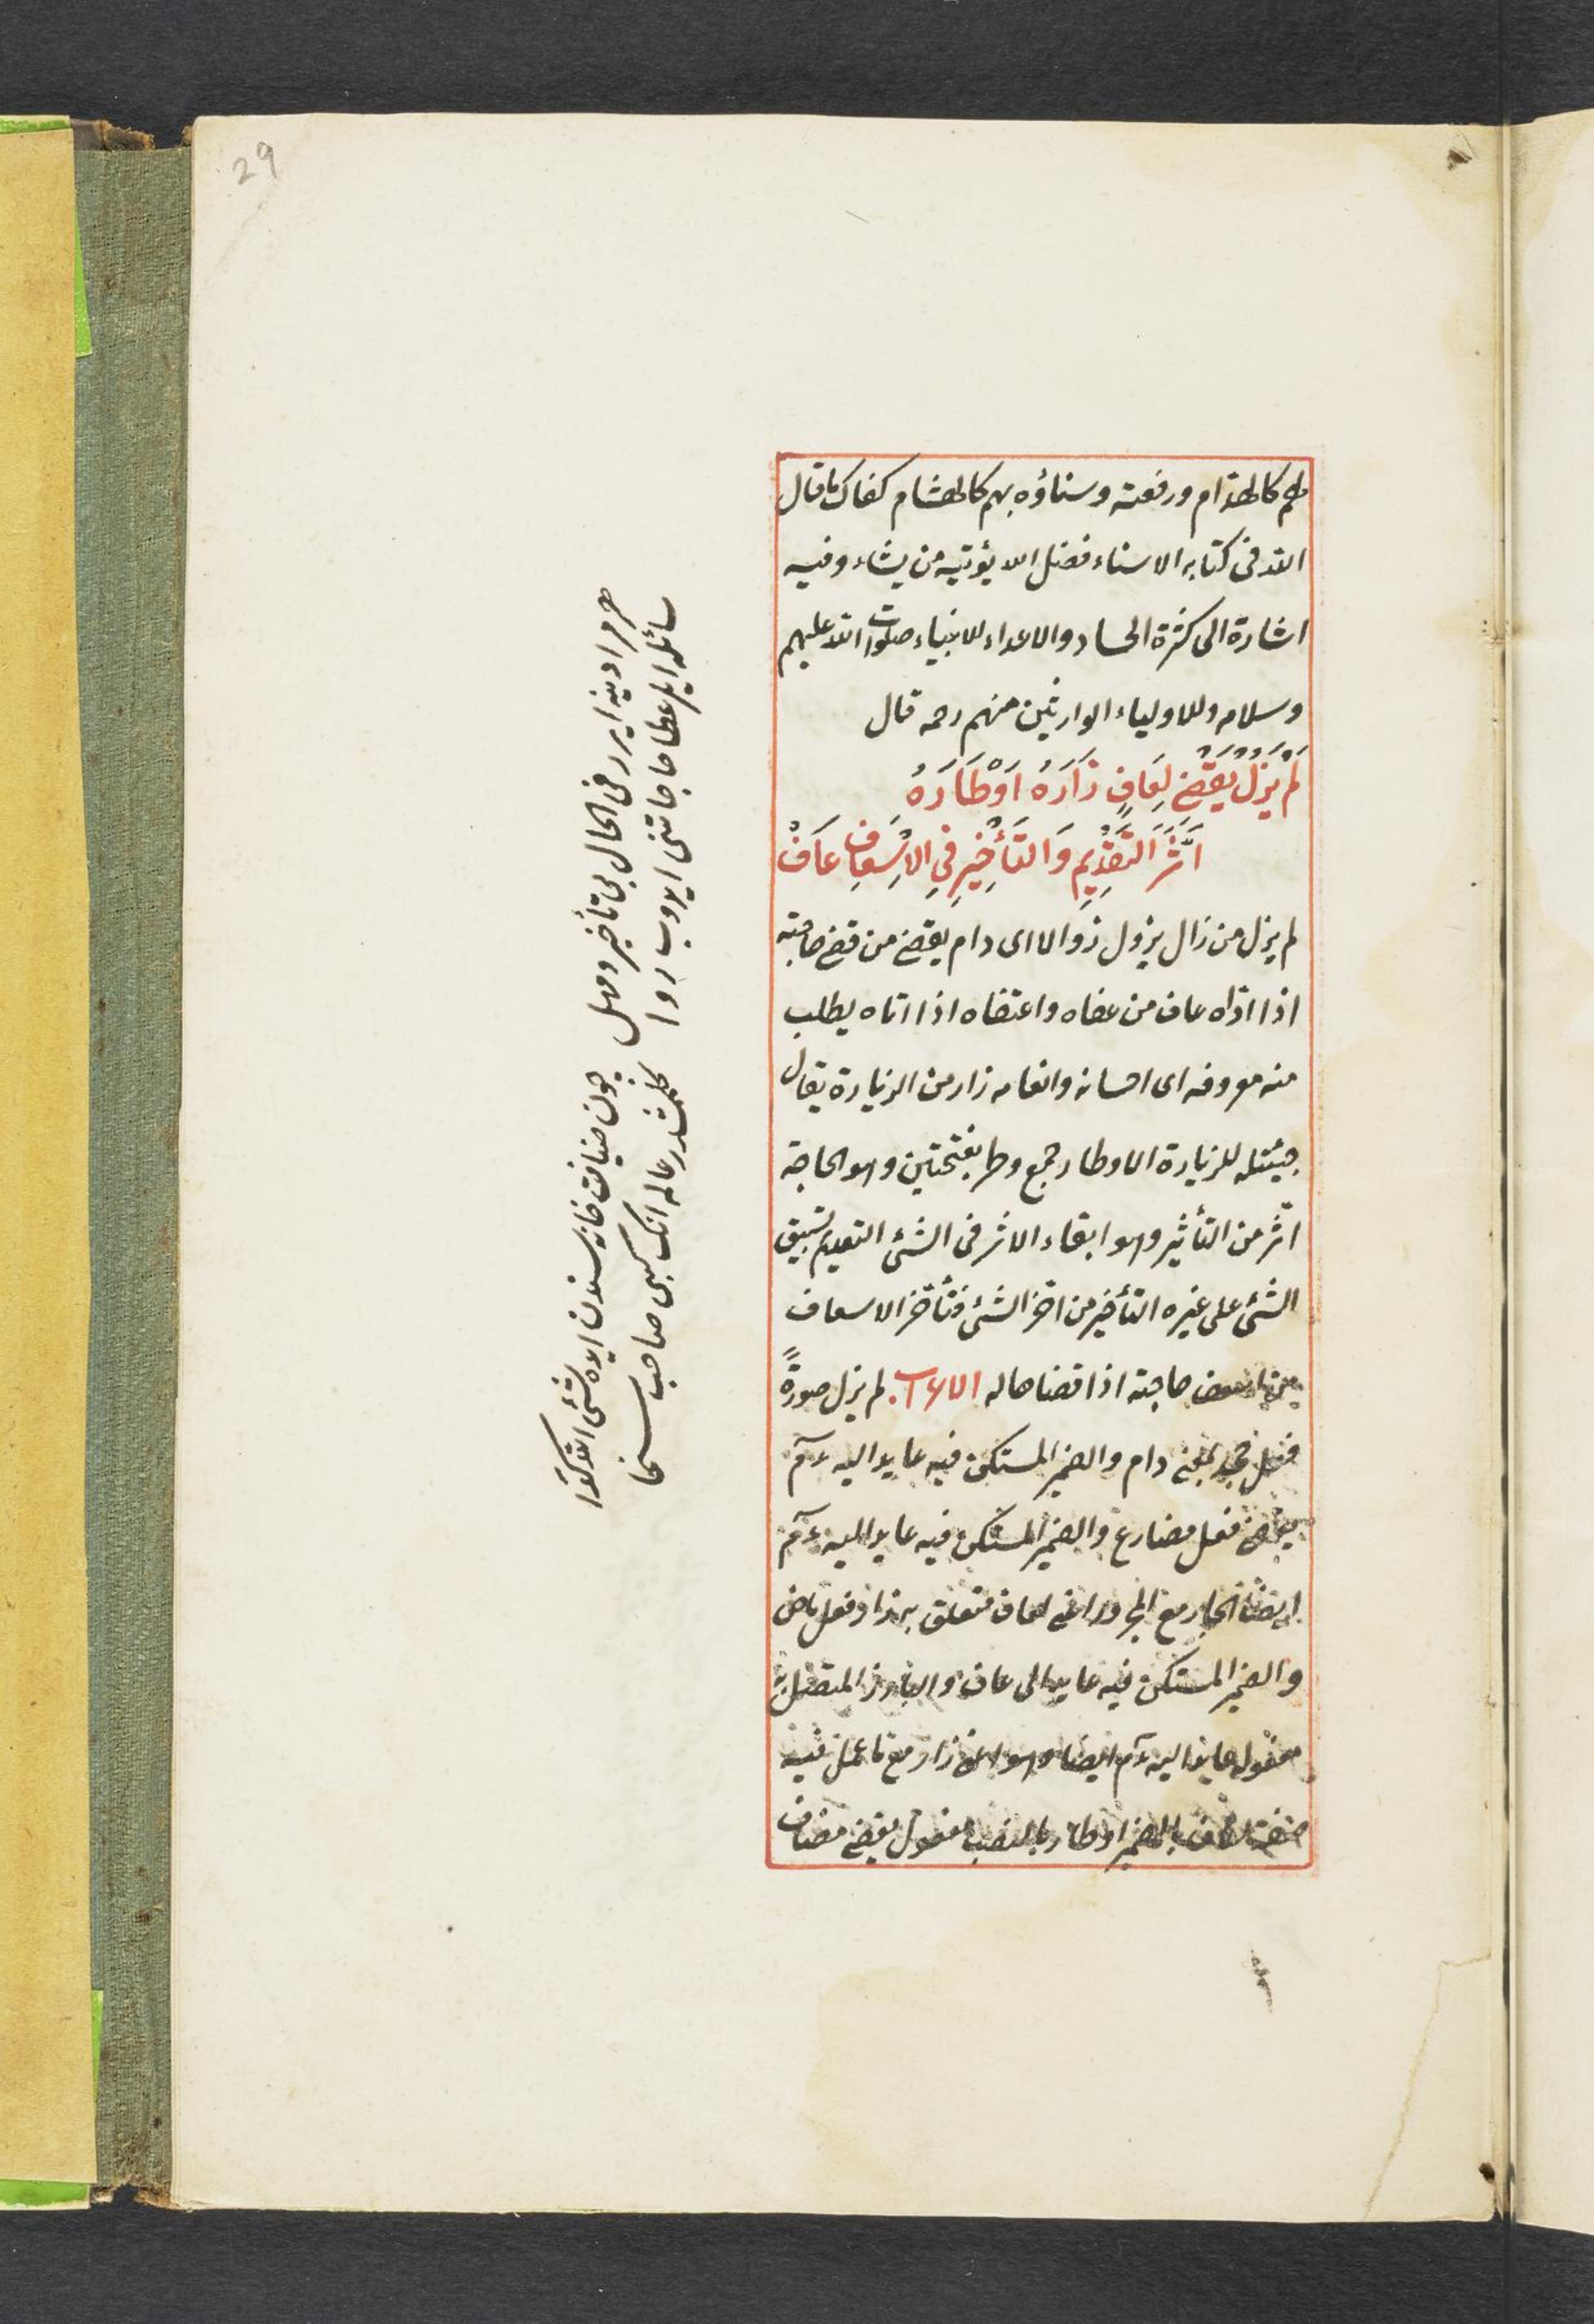 29
لهم كالهذام ورفعته وسناؤه بهم كالهشام كفاك ما قال
الله فى كتابه الاسناء فضل الله يؤتيه من يشاء وفيه
اشارة الى كثرة الحساد والاعداء للانبياء صلوات الله عليهم
وسلامه وللاولياء الوارثين منهم رحمه قال
لَمْ يَزَلْ يَقْضِ لِعَافٍ زَارَهُ اَوْطَارَهُ
اَثَّرَ التَّقْدِيمِ وَالتَّأْخِيرِ فِي الْاِسْعَافِ عَافْ
لم يزل من زال يزول زوالا اى دام يقضى من قضى حاجته
اذا اداه عاف من عفاه واعتفاه اذا اتاه يطلب
منه معروفه اى احسانه وانعامه زار من الزيارة يقال
جيئتله للزيارة الاوطار جمع وطر بفتحتين وهو الحاجة
اثر من التأثير وهو ابقاء الاثر فى الشئ التقديم تسبيق
الشئ على غيره التأخير من اخر الشئ فتأخر الاسعاف
من اسعف حاجته اذا قضاها له الاعراب لم يزل صورةً
فعل بمعنى دام والضمير المستكن فيه عايد اليه ءم
يقضى فعل مضارع والضمير المستكن فيه عايد اليه ءم
ايضا الجار مع المجرور اعنى لعاف متعلق به زار فعل ماض
والضمير المستكن فيه عايد الى عاف والبارز المتصل به
مفوله عايد اليه ءم ايضا وهو اعنى زار مع ما عمل فيه
صفة لعاف اوطار بالنصب مفعول يقضى مضاف
سائله ايلر عطا حاجاتنى ايدوب روا
هر مرادينه ايرر فى الحال بى تأخير ومهل
كلمشدر عالمه انك كبى صاحب سخا
چون ضيافت ايده